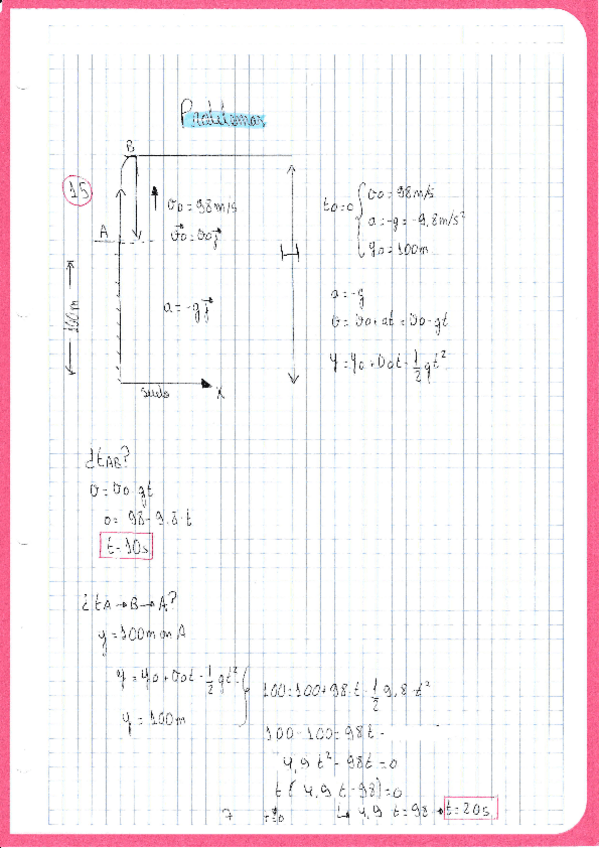 Problemas
B
15
v0 = 98 m/s
v⃗0 = v0 j⃗
A
H
100m
a = -g j⃗
suelo
X
t0=0 { v0 = 98 m/s
a = -g = -9,8 m/s²
y0 = 100m
a = -g
v = v0 + at = v0 - gt
y = y0 + v0t - 1/2 gt²
¿tAB?
v = v0 - gt
0 = 98 - 9,8 · t
t = 10s
¿tA→B→A?
y = 100m en A
y = y0 + v0t - 1/2 gt²
y = 100m
100 = 100 + 98·t - 1/2 9,8·t²
100 - 100 = 98t -
4,9 t² - 98t = 0
t (4,9 t - 98) = 0
4,9 t = 98 → t = 20s